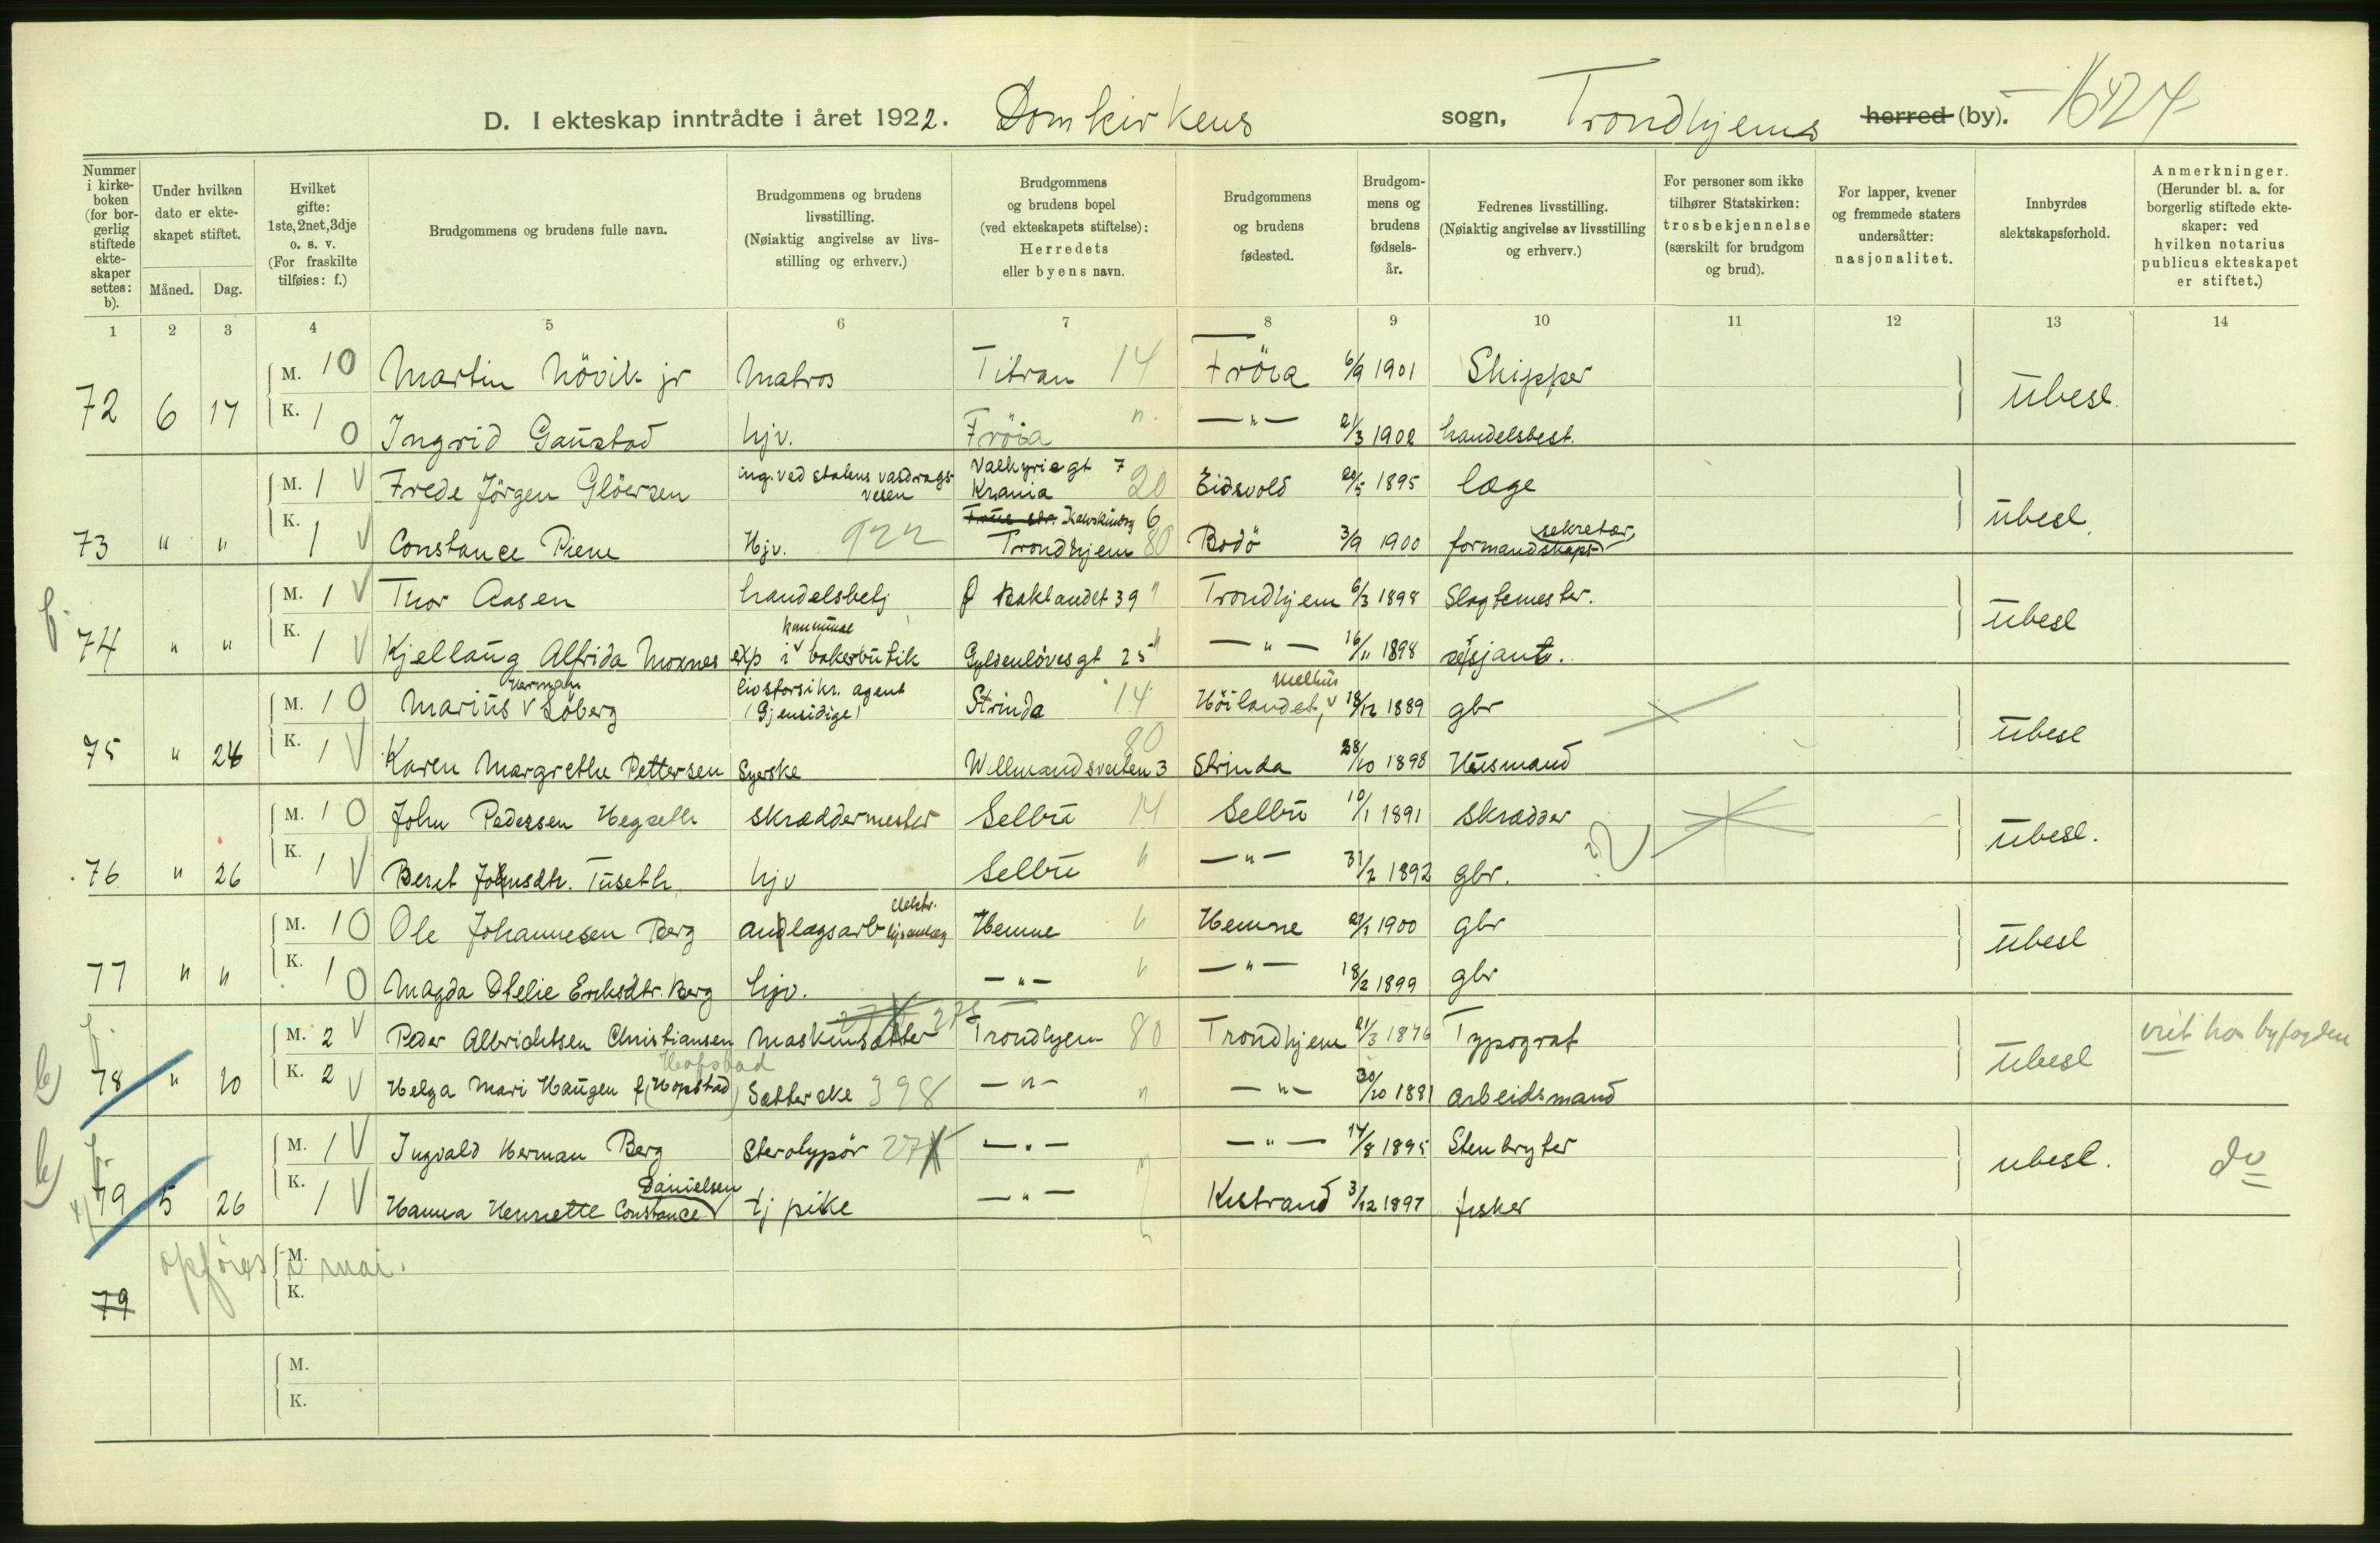 D. I ekteskap inntrådte i året 1922. Domkirkens sogn, Trondhjems herred (by). 1624
Nummer i kirkeboken (for borgerlig stiftede ekteskaper settes: b).
Under hvilken dato er ekteskapet stiftet.
Måned. Dag.
Hvilket gifte: 1ste, 2net, 3dje o. s. v. (For fraskilte tilføies: f.)
Brudgommens og brudens fulle navn.
Brudgommens og brudens livsstilling. (Nøiaktig angivelse av livsstilling og erhverv.)
Brudgommens og brudens bopel (ved ekteskapets stiftelse): Herredets eller byens navn.
Brudgommens og brudens fødested.
Brudgommens og brudens fødselsår.
Fedrenes livsstilling. (Nøiaktig angivelse av livsstilling og erhverv.)
For personer som ikke tilhører Statskirken: trosbekjennelse (særskilt for brudgom og brud).
For lapper, kvener og fremmede staters undersåtter: nasjonalitet.
Innbyrdes slektskapsforhold.
Anmerkninger. (Herunder bl. a. for borgerlig stiftede ekteskaper: ved hvilken notarius publicus ekteskapet er stiftet.)
1 2 3 4 5 6 7 8 9 10 11 12 13 14
M. 1 0 Martin Hövik jr Matros Titran 14 Fröia 6/9 1901 Skipper
72 6 17 K. 1 0 Ingrid Gaustad hjv. Fröia " — " — 21/3 1902 handelsbest. Ubesl.
M. 1 V Frede Jörgen Glöersen ing. ved statens vasdragsvesen Valkyriegt 7 Krania 20 Eidsvold 20/5 1895 læge
73 " " K. 1 V Constance Piene Hjv. 922 Kalvskindsg 6 Trondhjem 80 Bodö 3/9 1900 formandskapssekretær, ubesl.
f.
M. 1 V Thor Aasen handelsbetj Ø Baklandet 39 " Trondhjem 6/3 1898 Slagtemester.
74 " " K. 1 V Kjellaug Alfrida Moxnes exp i kommunal bakerbutik Gyldenlövesgt 25 " — " — 16/11 1898 sersjant. Ubesl
M. 1 0 Marius Herman Löberg livsforsikr. agent (Gjensidige) Strinda 14 Höilandet, Melhus 18/12 1889 gbr
75 " 26 K. 1 V Karen Margrethe Pettersen Syerske Wellmandsveiten 3 80 Strinda 28/10 1898 Husmand Ubesl
M. 1 0 John Pedersen Hegseth skræddermester Selbu 14 Selbu 10/1 1891 Skrædder
76 " 26 K. 1 V Beret Johnsdtr. Tuseth hjv Selbu " — " — 31/2 1892 gbr. Ubesl.
M. 1 0 Ole Johannesen Berg anlægsarb elektr. lysanlæg Hemne " Hemne 21/1 1900 gbr
77 " " K. 1 0 Magda Otelie Eriksdtr. Berg hjv. — " — " — " — 18/2 1899 gbr Ubesl
f.
M. 2 V Peder Albrichtsen Christiansen Maskinsætter 275 Trondhjem 80 Trondhjem 21/3 1876 Typograf viet hos byfogden
b) 78 " 20 K. 2 V Helga Mari Haugen f (Hopstad) Hofstad Sætterske 398 — " — " — " — 30/10 1881 Arbeidsmand Ubesl
f.
M. 1 V Ingvald Herman Berg Sterotypör 27 — " — — " — 14/8 1895 Stenbryter
b) 79 5 26 K. 1 V Hanna Henriette Constance Danielsen tj pike — " — Kistrand 3/12 1897 fisker ubesl. do
opföres i mai.
M.
79 K.
M.
K.